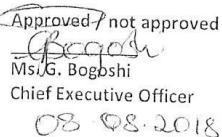 Approved / not approved
GBogoshi
Ms. G. Bogoshi
Chief Executive Officer
08.08.2018